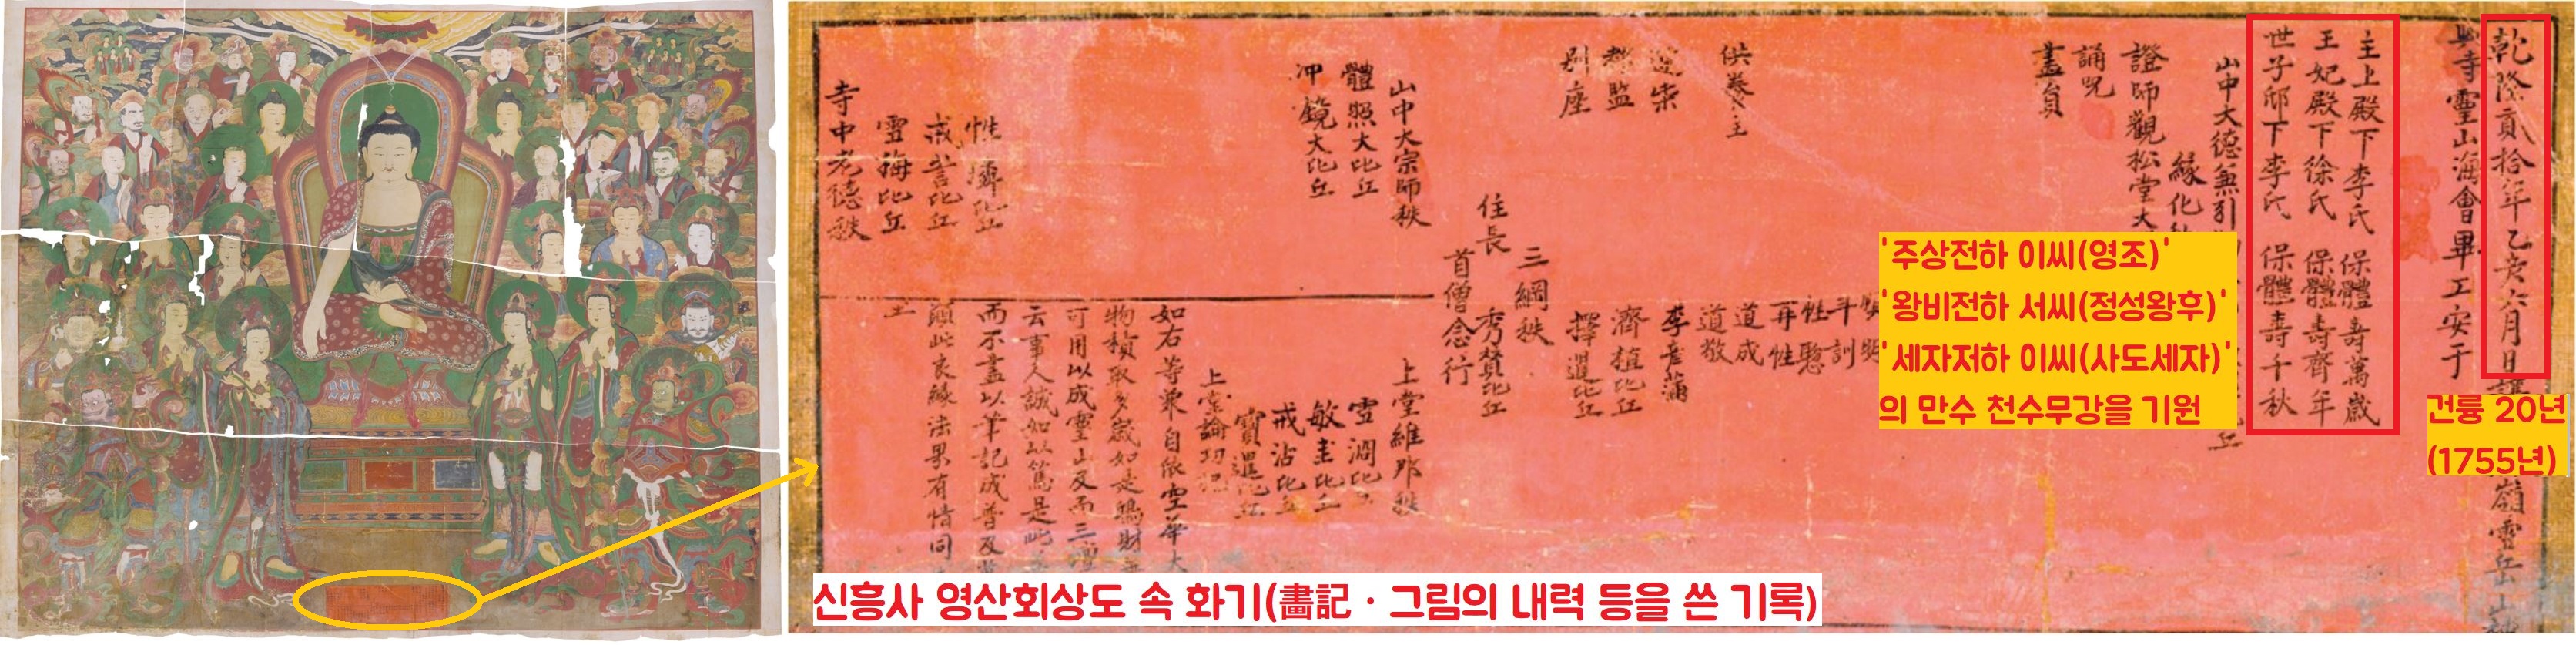 乾隆貳拾年乙亥六月日
興寺靈山海會畢工安于
主上殿下李氏 保體壽萬歲
王妃殿下徐氏 保體壽齊年
世子邸下李氏 保體壽千秋
山中大德無引
緣化
證師觀松堂大
誦呪
畵員
供養主
別座
都監
李彦蒲
道敬
道成
再性
性聦
斗訓
濟植比丘
擇還比丘
三綱秩
住長 秀賛比丘
首僧念行
山中大宗師秩
體照大比丘
冲鏡大比丘
性
戒訔比丘
雪海比丘
寺中老德秩
上堂維那秩
雪澗比
敏圭比丘
戒沾比丘
寶還比丘
如右等衆自依空華大
物積取多歲如是鳩財
可用以成靈山及而三
云事人誠如以篤是此
而不盡以筆記成普及
願此良緣法界有情同
嶺雪岳山
'주상전하 이씨(영조)'
'왕비전하 서씨(정성왕후)'
'세자저하 이씨(사도세자)'
의 만수 천수무강을 기원
건륭 20년
(1755년)
신흥사 영산회상도 속 화기(畵記 · 그림의 내력 등을 쓴 기록)